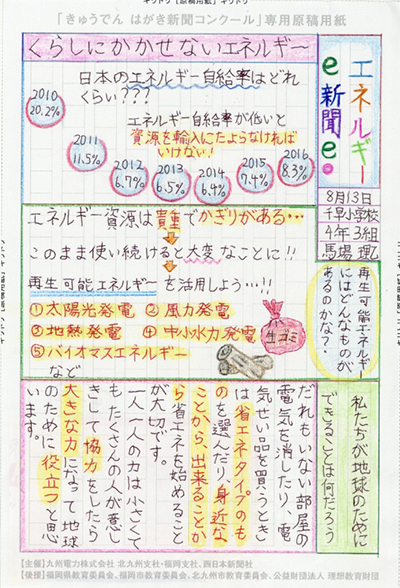 「きゅうでん はがき新聞コンクール」専用原稿用紙
エネルギー
e新聞e。
8月13日
千早小学校
4年3組
くらしにかかせないエネルギー
日本のエネルギー自給率はどれ
くらい???
2010
20.2%
2011
11.5%
2012
6.7%
2013
6.5%
2014
6.4%
2015
7.4%
2016
8.3%
エネルギー自給率が低いと
資源を輸入にたよらなければ
いけない!
エネルギー資源は貴重でかぎりがある…
このまま使い続けると大変なことに!!
再生可能エネルギーを活用しよう…!!
①太陽光発電 ②風力発電
③地熱発電 ④中小水力発電
⑤バイオマスエネルギー
など
生ゴミ
再生可能エネルギー
にはどんなものが
あるのかな?
私たちが地球のために
できることは何だろう
だれもいない部屋の
電気を消したり、電
気せい品を買うとき
は省エネタイプのも
のを選んだり、身近な
ことから、出来ることか
ら省エネを始めること
が大切です。
一人一人の力は小さくて
もたくさんの人が意し
きして協力をしたら
大きな力になって地球
のために役立つと思
います。
【主催】九州電力株式会社 北九州支社・福岡支社、西日本新聞社
【後援】福岡県教育委員会、福岡市教育委員会、北九州市教育委員会、公益財団法人 理想教育財団